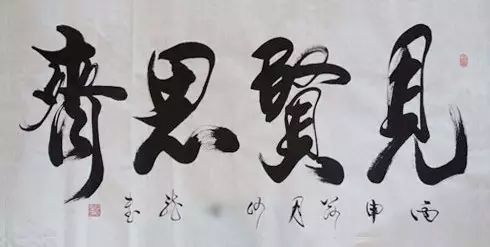 見賢思齊
丙申 月